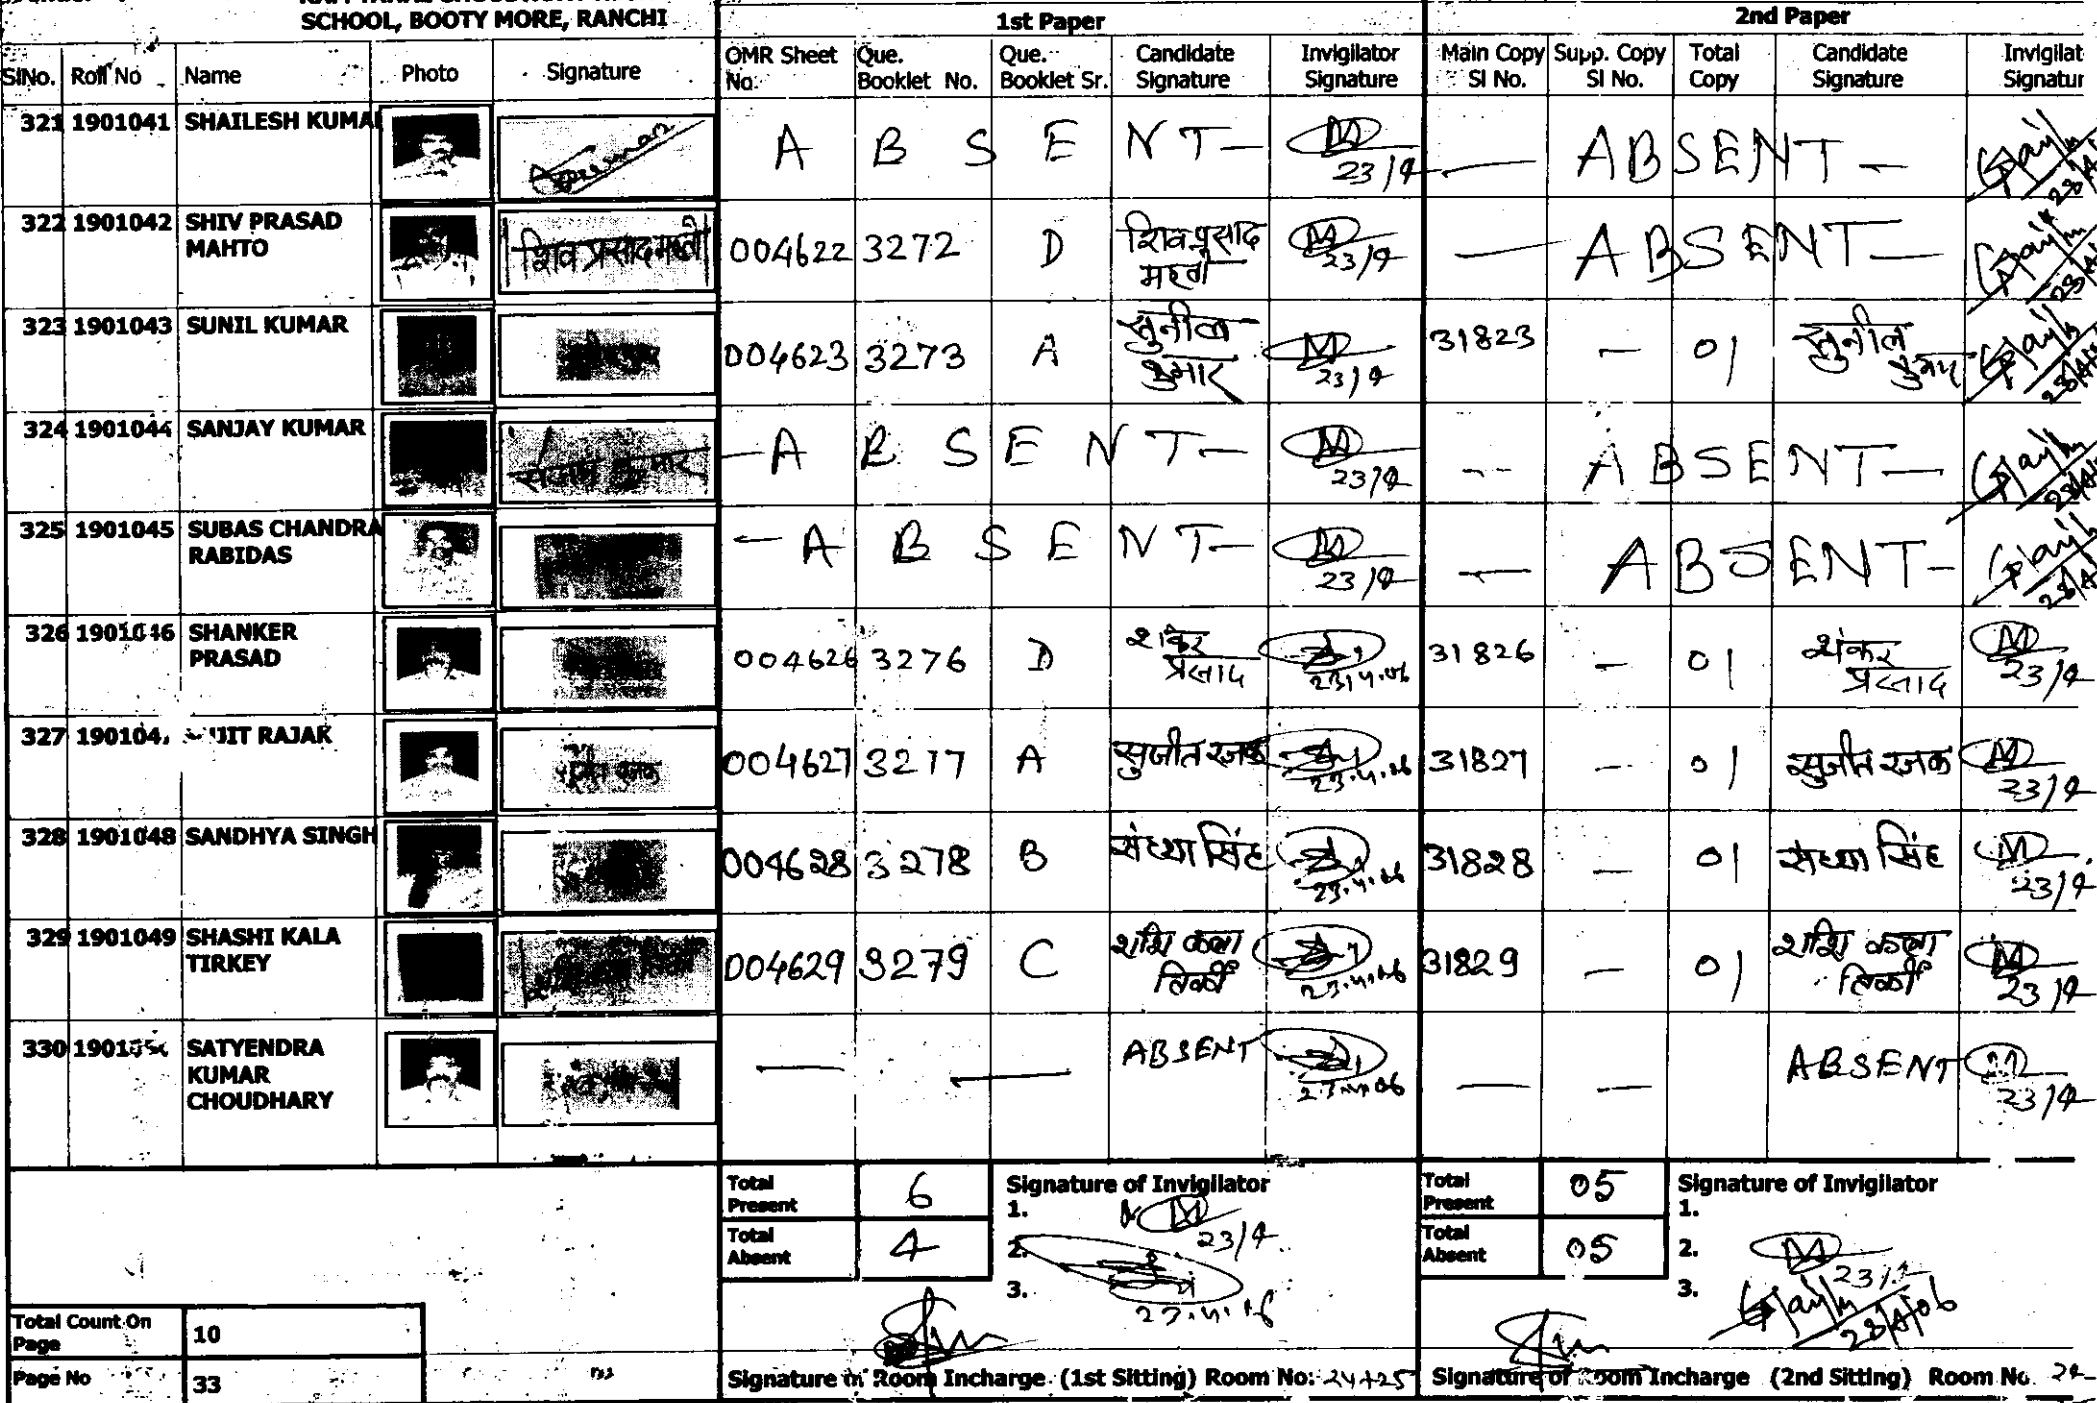 SCHOOL, BOOTY MORE, RANCHI
1st Paper
2nd Paper
SlNo. Roll No Name Photo Signature OMR Sheet No. Que. Booklet No. Que. Booklet Sr. Candidate Signature Invigilator Signature Main Copy Sl No. Supp. Copy Sl No. Total Copy Candidate Signature Invigilat Signatur
321 1901041 SHAILESH KUMA A B S E N T - 23/4 — ABSENT —
322 1901042 SHIV PRASAD MAHTO शिव प्रसाद महतो 004622 3272 D शिव प्रसाद महतो 23/4 — ABSENT —
323 1901043 SUNIL KUMAR 004623 3273 A सुनील कुमार 23/4 31823 — 01 सुनील कुमार
324 1901044 SANJAY KUMAR — A B S E N T — 23/4 — ABSENT —
325 1901045 SUBAS CHANDRA RABIDAS — A B S E N T — 23/4 — ABSENT —
326 1901046 SHANKER PRASAD 004626 3276 D शंकर प्रसाद 23.4.06 31826 — 01 शंकर प्रसाद 23/4
327 190104 JIT RAJAK 004627 3277 A सुजीत रजक 23.4.06 31827 — 01 सुजीत रजक 23/4
328 1901048 SANDHYA SINGH 004628 3278 B संध्या सिंह 23.4.06 31828 — 01 संध्या सिंह 23/4
329 1901049 SHASHI KALA TIRKEY 004629 3279 C शशि कला तिर्की 23.4.06 31829 — 01 शशि कला तिर्की 23/4
330 SATYENDRA KUMAR CHOUDHARY — — ABSENT 23.4.06 — — ABSENT 23/4
Total Present 6 Signature of Invigilator Total Present 05 Signature of Invigilator
1. 23/4 1.
Total Absent 4 2. Total Absent 05 2. 23/4
3. 23.4.06 3. 23/4/06
Total Count On Page 10
Page No 33 Signature of Room Incharge (1st Sitting) Room No: 24+25 Signature of Room Incharge (2nd Sitting) Room No.